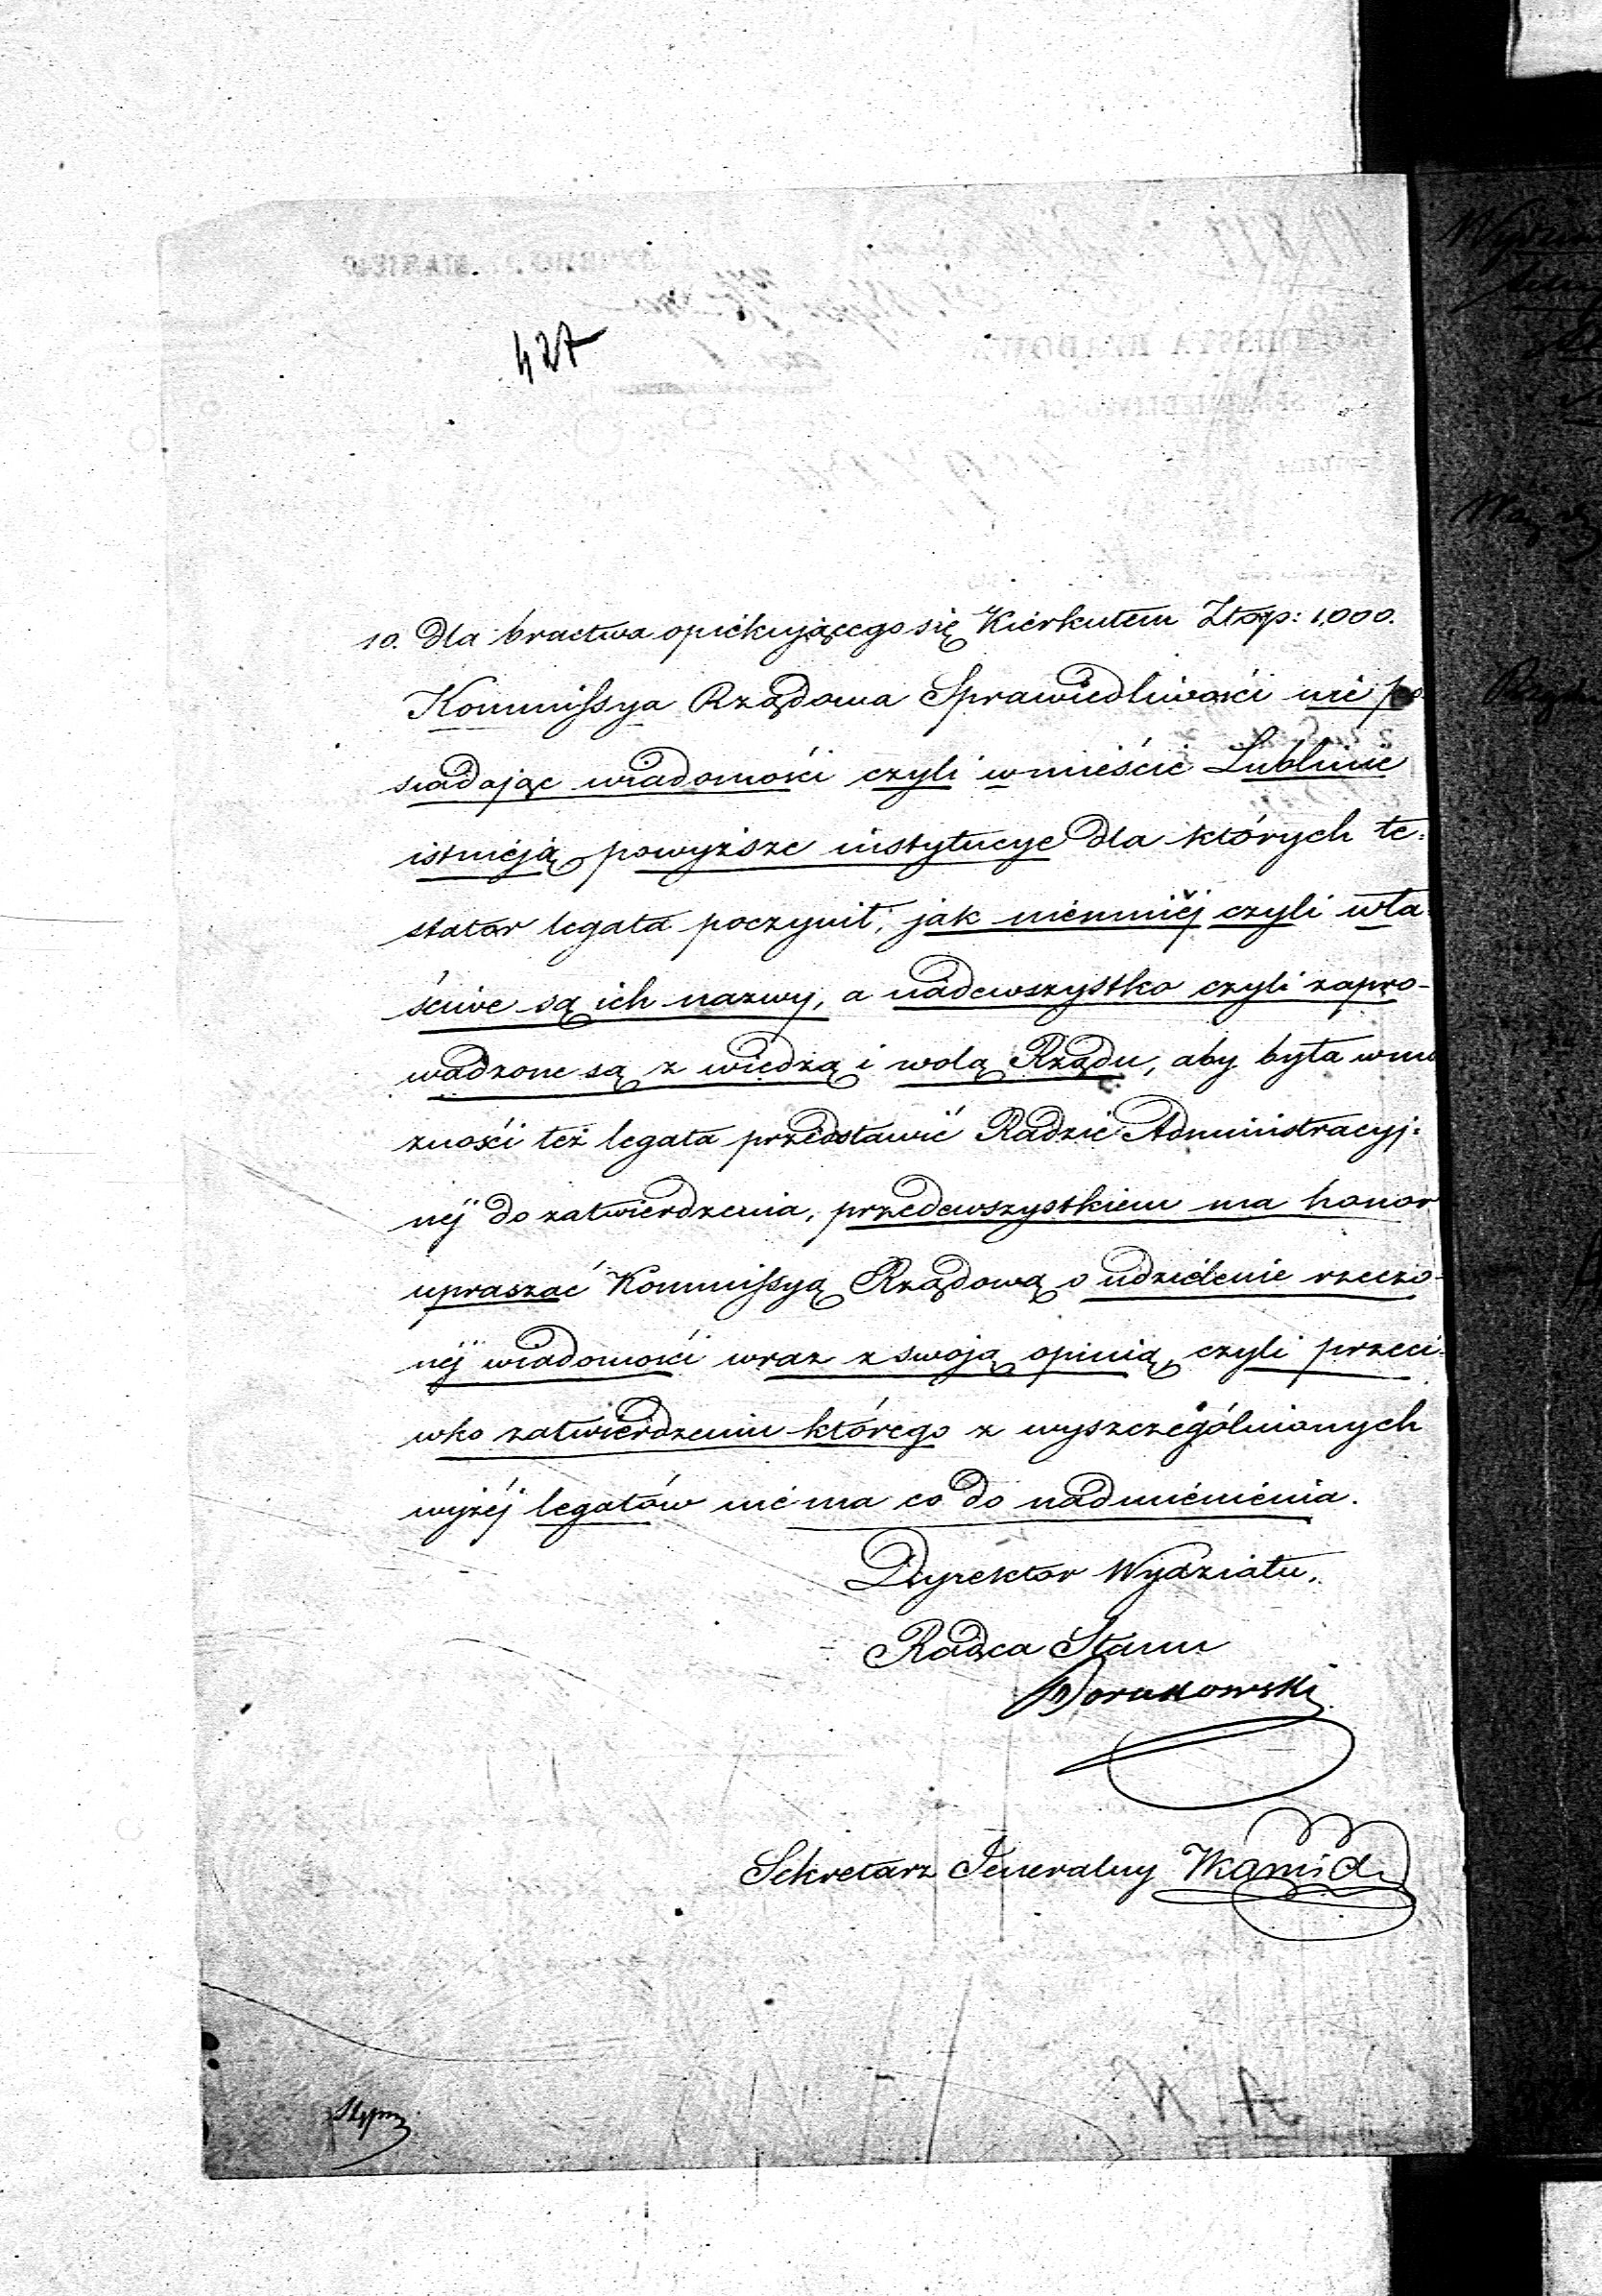 427
10. Dla bractwa opiekującego się Kierkutem Złop: 1,000.
Kommissya Rządowa Sprawiedliwości nie po-
siadając wiadomości czyli w mieście Lublinie
istnieją powyższe instytucye dla których te-
stator legata poczynił, jak niemniéj czyli wła-
ściwe są ich nazwy, a nadewszystko czyli zapro-
wadzone są z wiedzą i wolą Rządu, aby była w mo
żności też legata przedstawić Radzie Administracyj-
néj do zatwierdzenia, przedewszystkiem ma honor
upraszać Kommissyą Rządową o udzielenie rzeczo-
néj wiadomości wraz z swoją opinią, czyli przeci-
wko zatwierdzeniu którego z wyszczególnionych
wyżéj legatów nie ma co do nadmienienia.
Dyrektor Wydziału,
Radca Stanu
Sekretarz Jeneralny